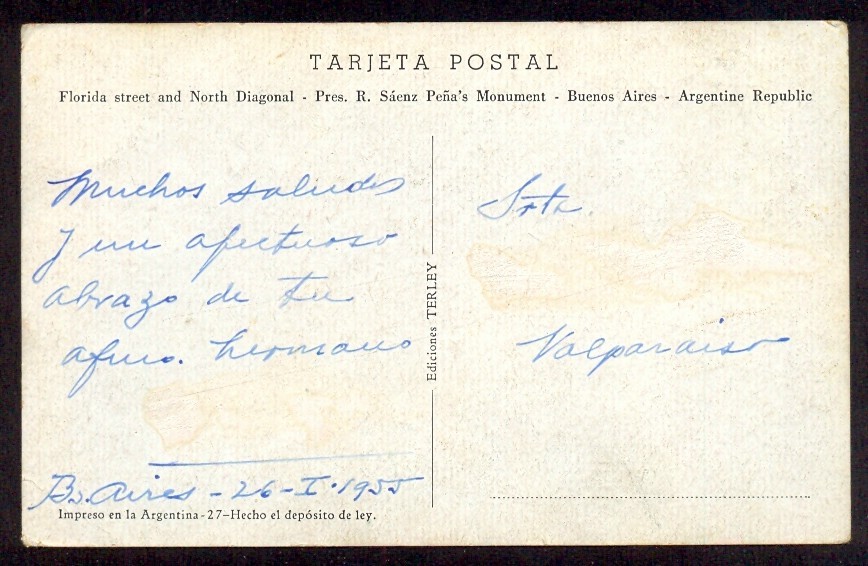 TARJETA POSTAL
Florida street and North Diagonal - Pres. R. Sáenz Peña's Monument - Buenos Aires - Argentine Republic
Muchos saludos
y un afectuoso
abrazo de tu
afmo. hermano
Bs. Aires - 26 - I - 1955
Impreso en la Argentina - 27 - Hecho el depósito de ley.
Ediciones TERLEY
Srta.
Valparaiso